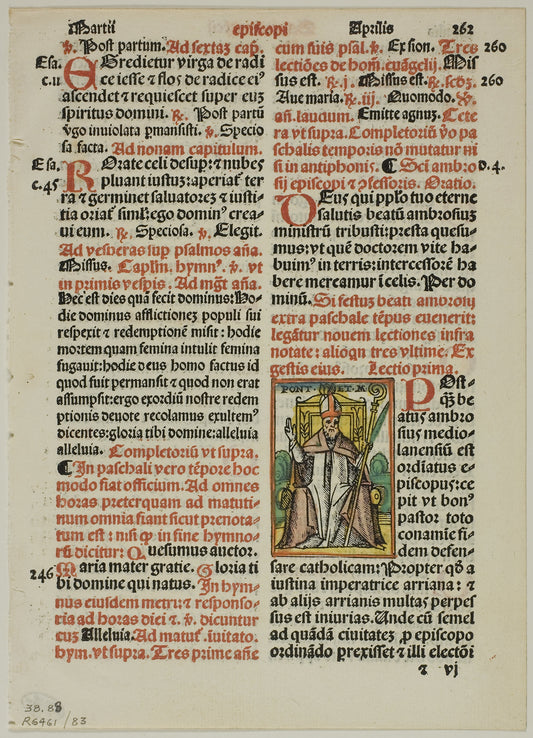 Martii episcopi Aprilis 262
℟. Post partum. Ad sextaʒ cap̄.
Esa. c.11 EGredietur virga de radi
ce iesse ⁊ flos de radice ei⁹
ascendet ⁊ requiescet super euʒ
spiritus domini. ℟. Post partū
v̄go inuiolata p̄mansisti. ℣. Specio
sa facta. Ad nonam capitulum.
Esa. c.45 ROrate celi desup̄: ⁊ nubes
pluant iustuʒ: aperiat̄ ter
ra ⁊ germinet saluatoreʒ ⁊ iusti⸗
tia oriat̄ siml̄: ego domin⁹ crea⸗
ui eum. ℟. Speciosa. ℣. Elegit.
Ad vesperas sup̄ psalmos an̄a.
Missus. Capl̄m hymn⁹ ℣. vt
in primis vesp̄is. Ad mḡt an̄a.
Hec est dies quā fecit dominus: Ho⸗
die dominus afflictioneʒ populi sui
respexit ⁊ redemptionē misit: hodie
mortem quam femina intulit femina
fugauit: hodie deus homo factus id
quod fuit permansit ⁊ quod non erat
assumpsit: ergo exordiū nostre redem
ptionis deuote recolamus exultem⁹
dicentes: gloria tibi domine: alleluia
alleluia. Completoriū vt supra.
¶ In paschali vero tēpore hoc
modo fiat officium. Ad omnes
horas preterquam ad matuti⸗
num omnia fiant sicut prenota⸗
tum est: nisi ꝙ in fine hymno⸗
rū dicitur: Quesumus auctor.
246 Maria mater gratie. Gloria ti
bi domine qui natus. In hym⸗
nus eiusdem metri: ⁊ responso⸗
ria ad horas diei ⁊ ℣. dicuntur
cuʒ Alleluia. Ad matut̄. īuitato.
hym. vt supra. Tres prime an̄e
cum suis psal. ℣. Ex sion. Tres 260
lectiōes de hom̄. euāgelij. Mis
sus est. ℟. j. Missus est. ℟. scd̄ʒ. 260
Aue maria. ℟. iij. Quomodo. ℣.
an̄. laudum. Emitte agnuʒ. Cete
ra vt supra. Completoriū v̄o pa
schalis temporis nō mutatur ni
si in antiphonis. ¶ Sc̄i ambro D.4.
sij episcopi ⁊ ↄfessoris. Oratio.
DEus qui pp̄lo tuo eterne
salutis beatū ambrosiuʒ
ministrū tribuisti: presta quesu⸗
mus: vt quē doctorem vite ha⸗
buim⁹ in terris: intercessorē ha
bere mereamur ī celis. Per do
minū. Si festuʒ beati ambrosij
extra paschale tēpus euenerit:
legātur nouem lectiones infra
notate: alioq̄n tres vltime. Ex
gestis eius. Lectio prima.
PONT ET M
POst⸗
q̄ʒ be
atus ambro
sius medio⸗
lanensiū est
ordiatus e⸗
piscopus: ce
pit vt bon⁹
pastor toto
conamīe fi⸗
dem defen⸗
sare catholicam: Propter qd̄ a
iustina imperatrice arriana: ⁊
ab alijs arrianis multas perpes
sus est iniurias. Unde cū semel
ad quādā ciuitateʒ ꝓ episcopo
ordinādo prexisset ⁊ illi electōi
⁊ vj
38.88
R6461/83